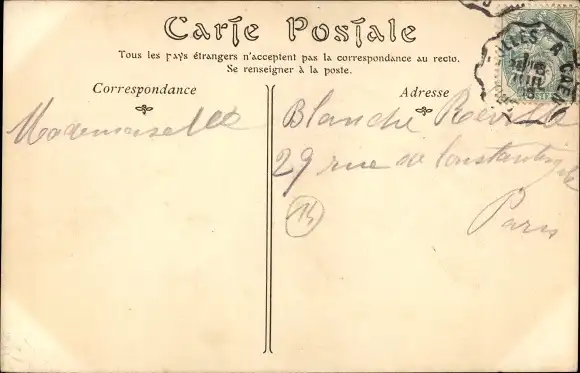 Carte Postale
Tous les pays étrangers n'acceptent pas la correspondance au recto.
Se renseigner à la poste.
Correspondance
Adresse
Mademoiselle
Blanche
29 rue de Constantinople
Paris
14
À CAEN